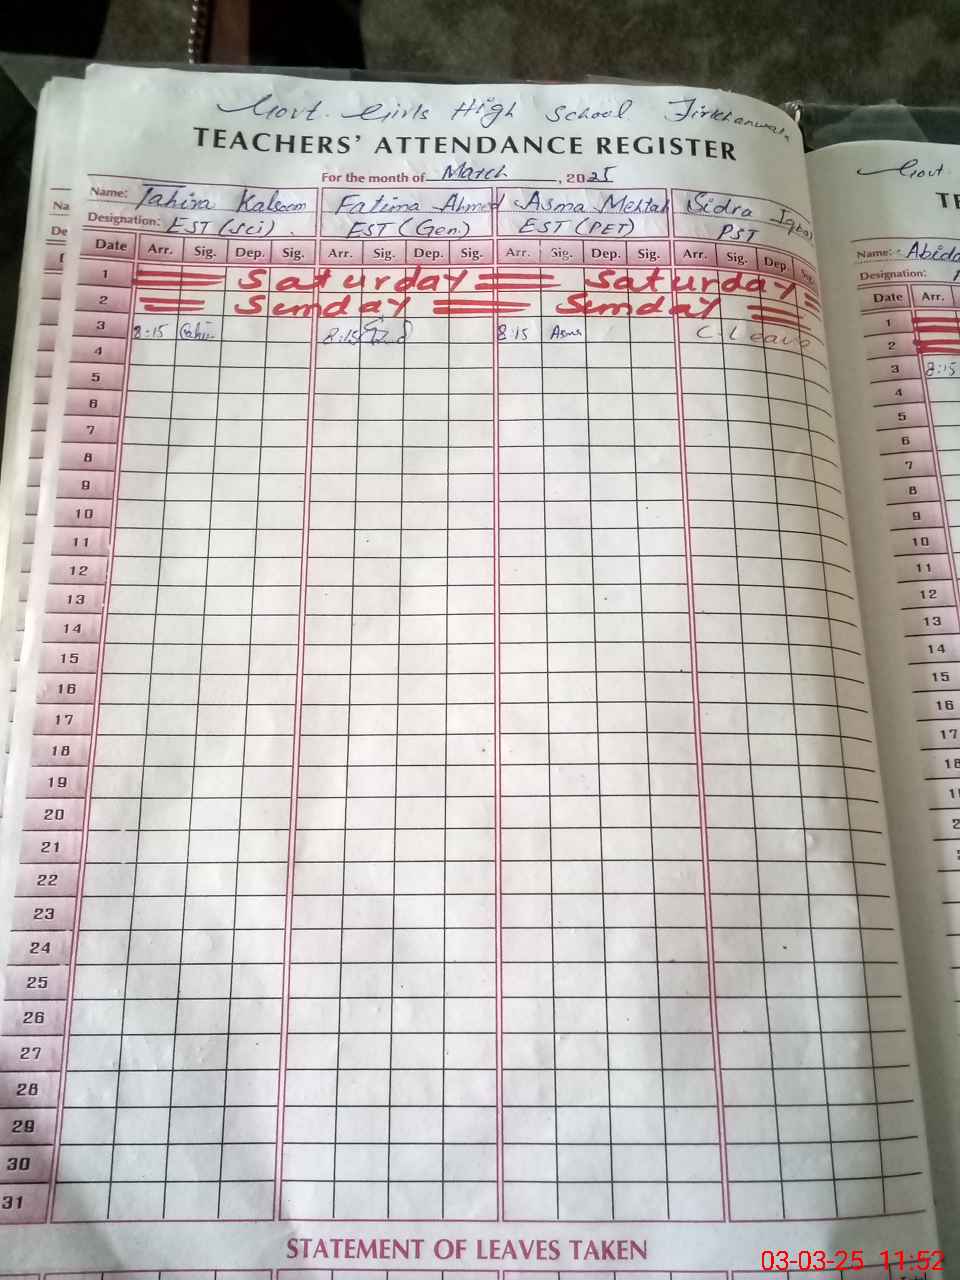 Govt. Girls High School
TEACHERS' ATTENDANCE REGISTER
For the month of March, 2025
Name: Tahira Kaleem Fatima Ahmed Asma Mehtab Sidra Iqbal
Designation: EST (Sci) EST (Gen) EST (PET) PST
Date Arr. Sig. Dep. Sig. Arr. Sig. Dep. Sig. Arr. Sig. Dep. Sig. Arr. Sig. Dep. Sig.
1 Saturday Saturday
2 Sunday Sunday
3 8:15 8:15 8:15 Asma C. Leave
4
5
6
7
8
9
10
11
12
13
14
15
16
17
18
19
20
21
22
23
24
25
26
27
28
29
30
31
STATEMENT OF LEAVES TAKEN
Govt.
Name: Abida
Designation:
Date Arr.
1
2
3 8:15
4
5
6
7
8
9
10
11
12
13
14
15
16
17
18
03-03-25 11:52